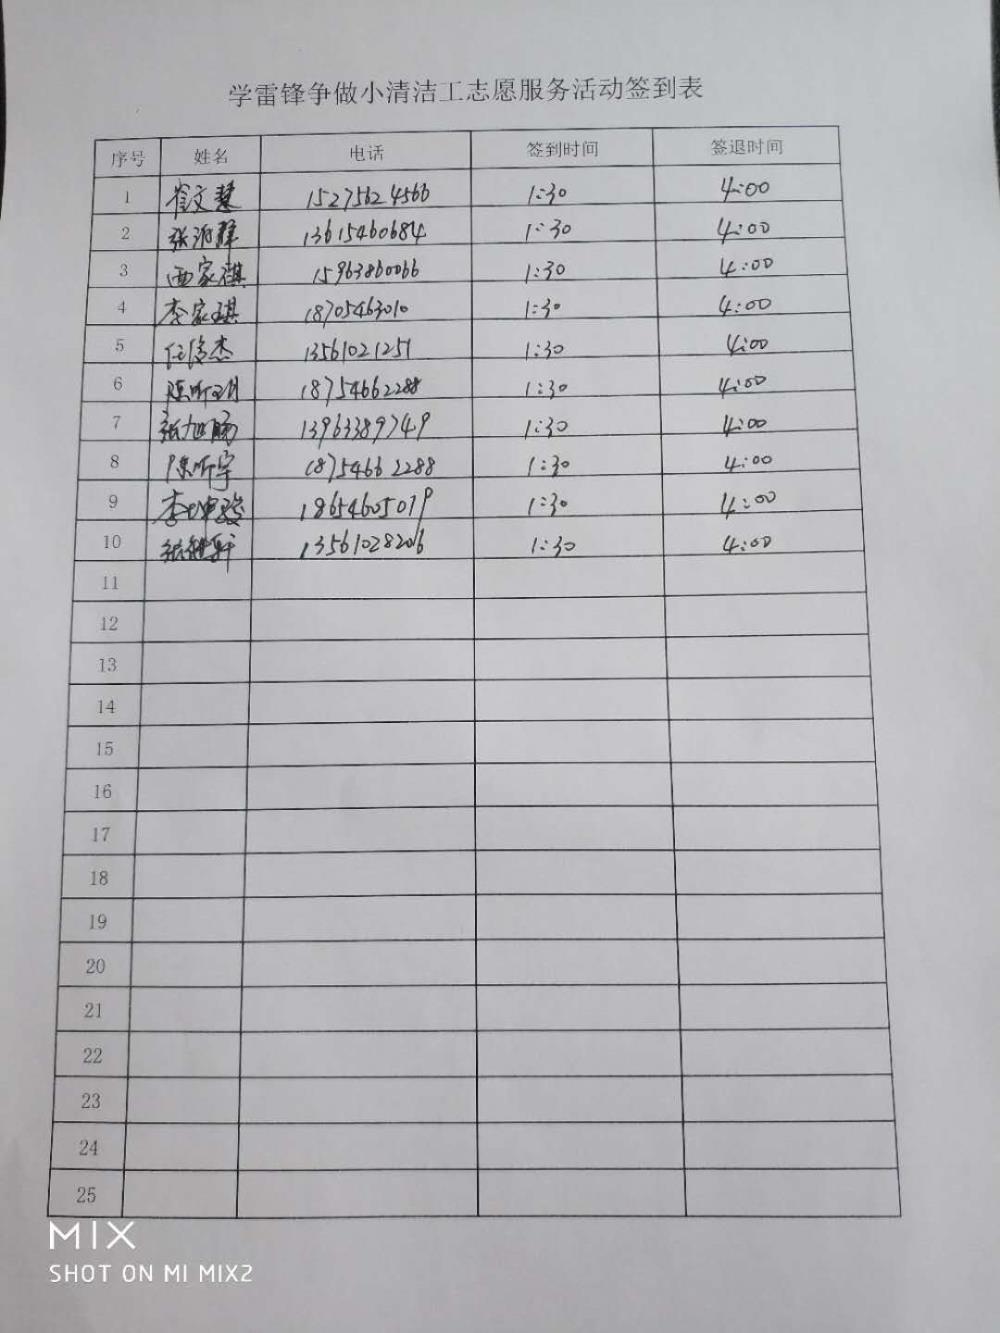 学雷锋争做小清洁工志愿服务活动签到表
序号 姓名 电话 签到时间 签退时间
1 崔文慧 15275624566 1:30 4:00
2 张 13615460684 1:30 4:00
3 西家祺 15963860066 1:30 4:00
4 李家琪 18705463010 1:30 4:00
5 任俊杰 13561021251 1:30 4:00
6 陈昕玥 18754662288 1:30 4:00
7 张旭 13963389749 1:30 4:00
8 陈昕宇 18754662288 1:30 4:00
9 李坤骏 18654605019 1:30 4:00
10 张继轩 13561028206 1:30 4:00
11
12
13
14
15
16
17
18
19
20
21
22
23
24
25
MIX
SHOT ON MI MIX2